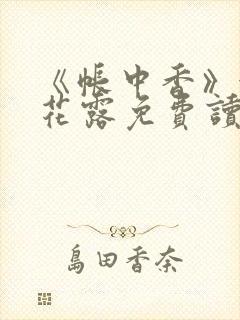 《帳中香》
花露免費讀
島田香奈